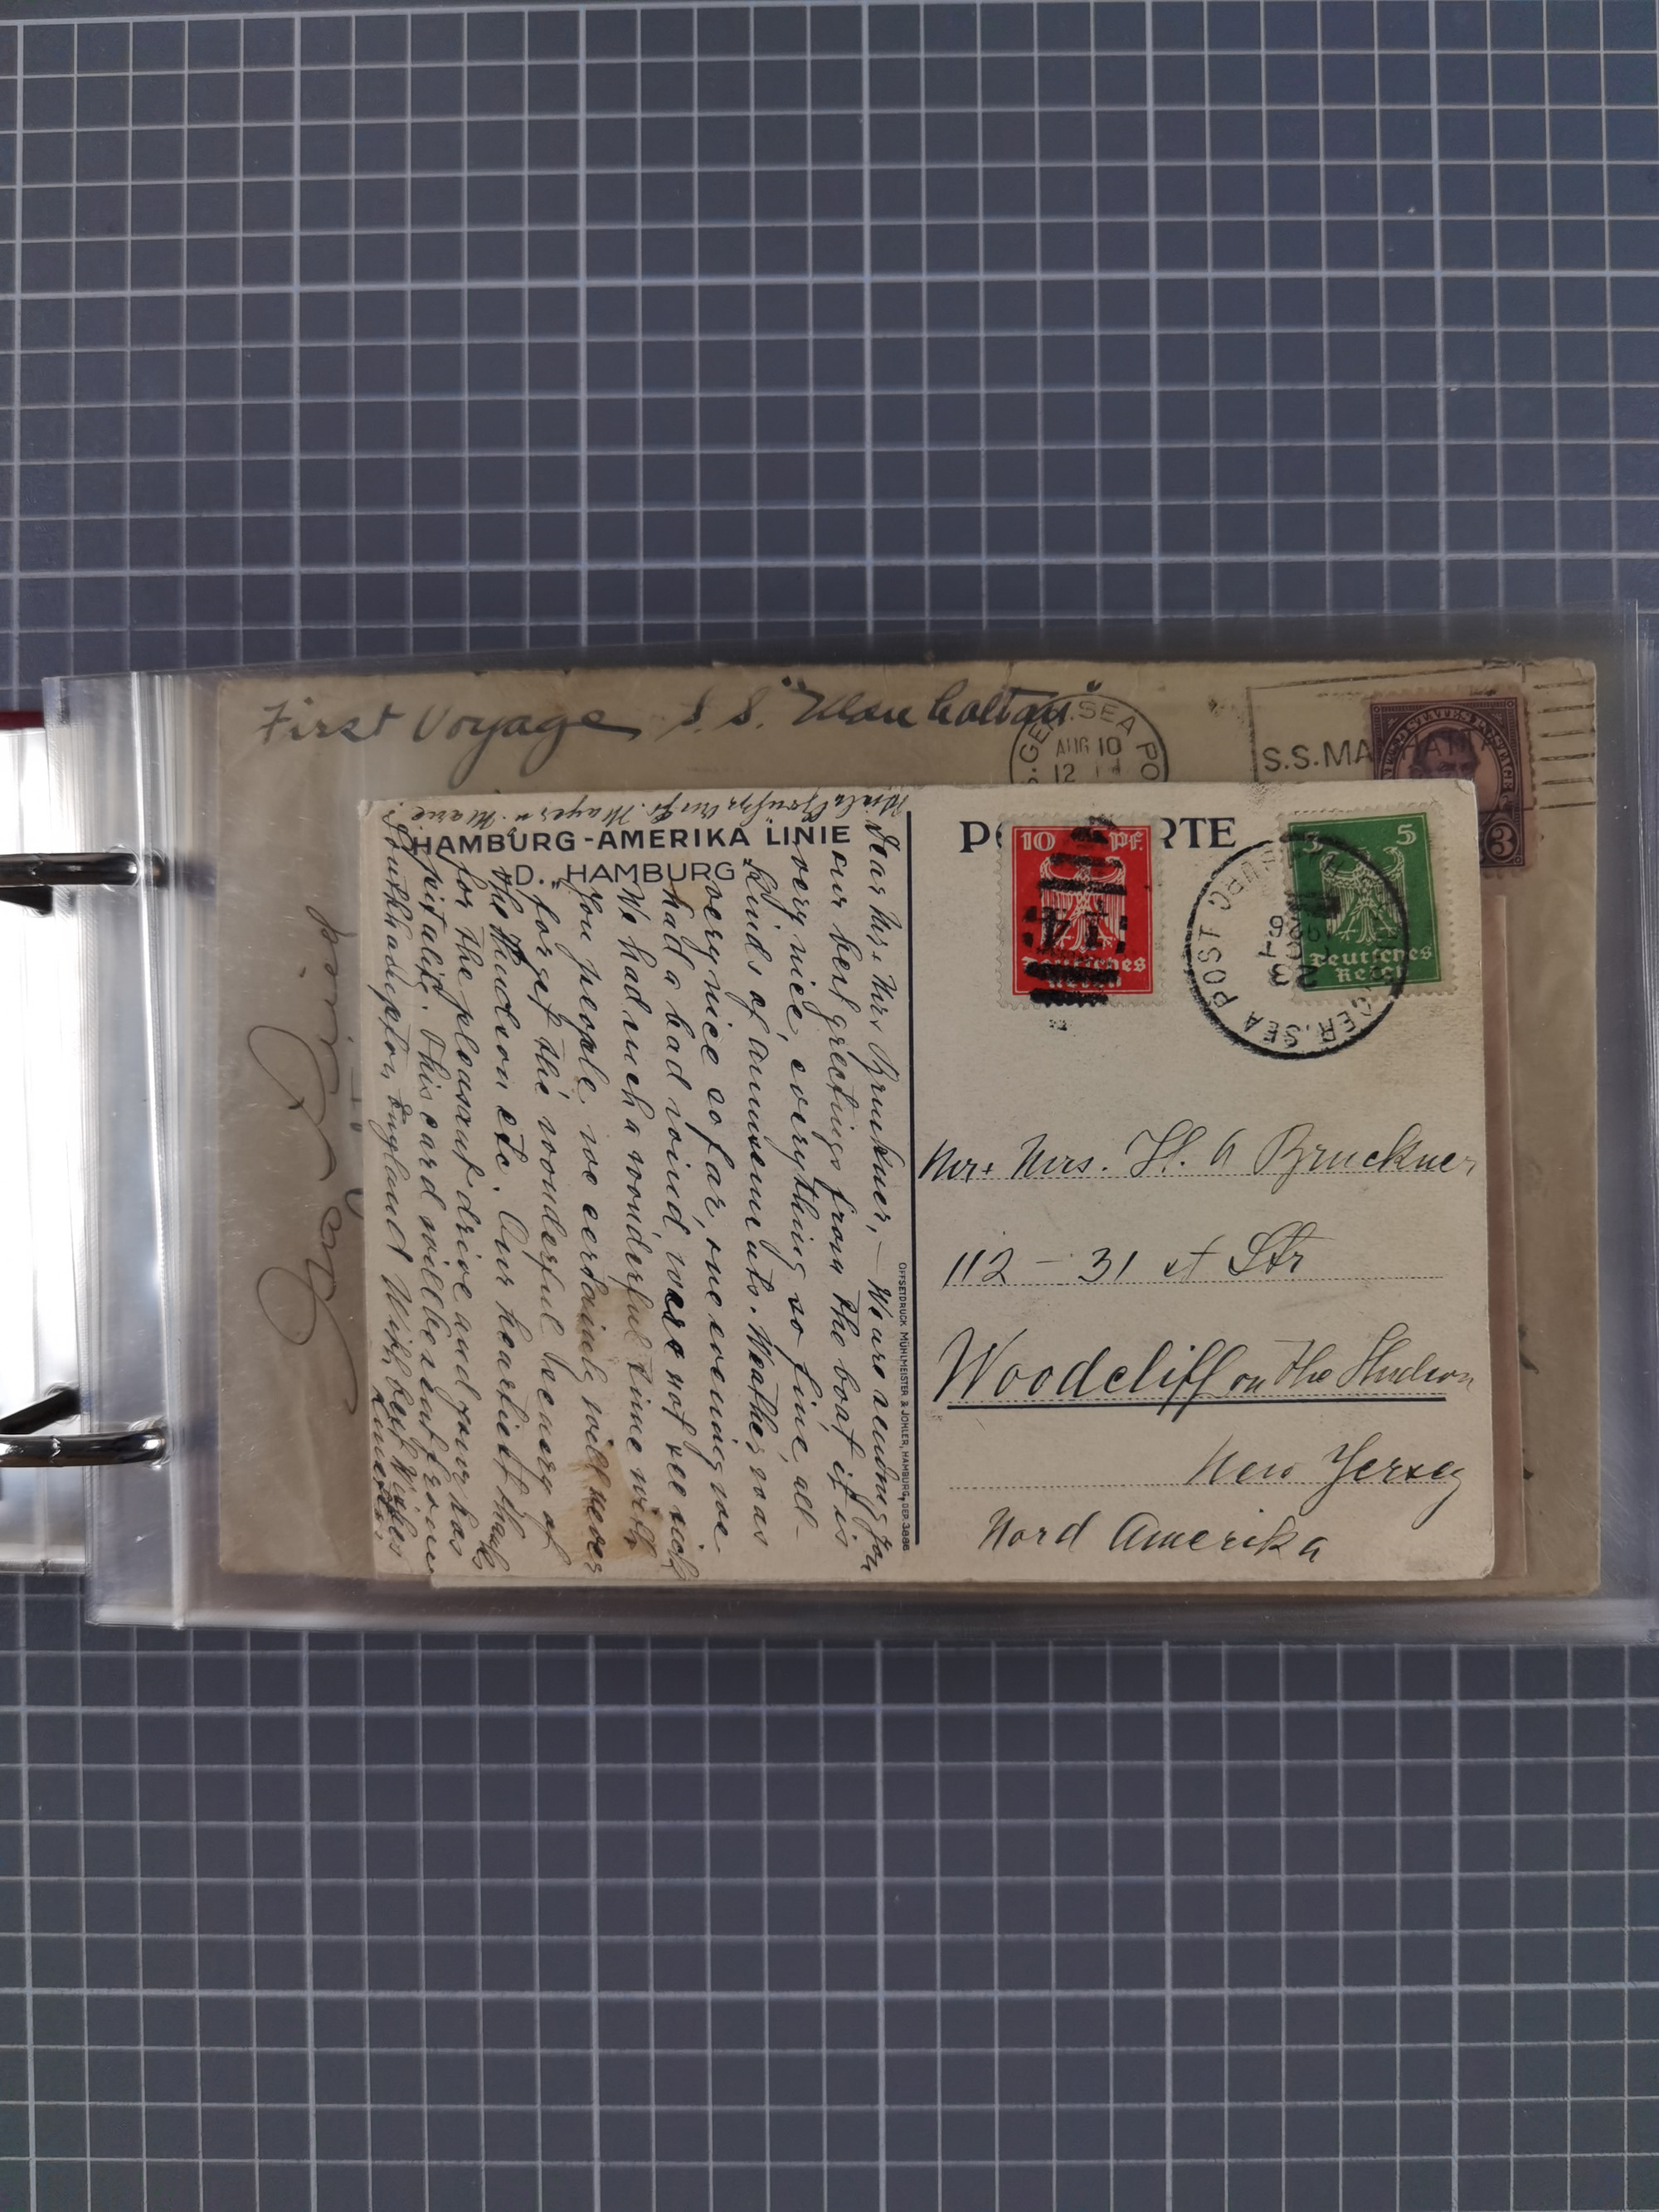 First Voyage S.S. "Manhattan"
SEA PO
AUG 10
12
S.S. MA
3
HAMBURG-AMERIKA LINIE
D. „HAMBURG"
PO RTE
10 PF.
Deutsches
Reich
5 5
Deutsches
Reich
SEA POST
Mr + Mrs. H. A Bruckner
112 - 31 st Str
Woodcliff on the Hudson
New Yersey
Nord Amerika
OFFSETDRUCK MÜHLMEISTER & JOHLER, HAMBURG, DEP. 3886
Dear Mr + Mrs Bruckner, — We are sending you
our best greetings from the boat it is
very nice, everything so fine, all
kinds of amusements. Weather was
very nice so far, one evening we
had a bad wind, were not see sick
We had such a wonderful time with
you people. we certainly will never
forget the wonderful scenery of
the Hudson etc. Our heartiest thanks
for the pleasant drive and your hos
pitality. This card will be sent from
Southhadmpton England With best wishes
Mayer u. Marie